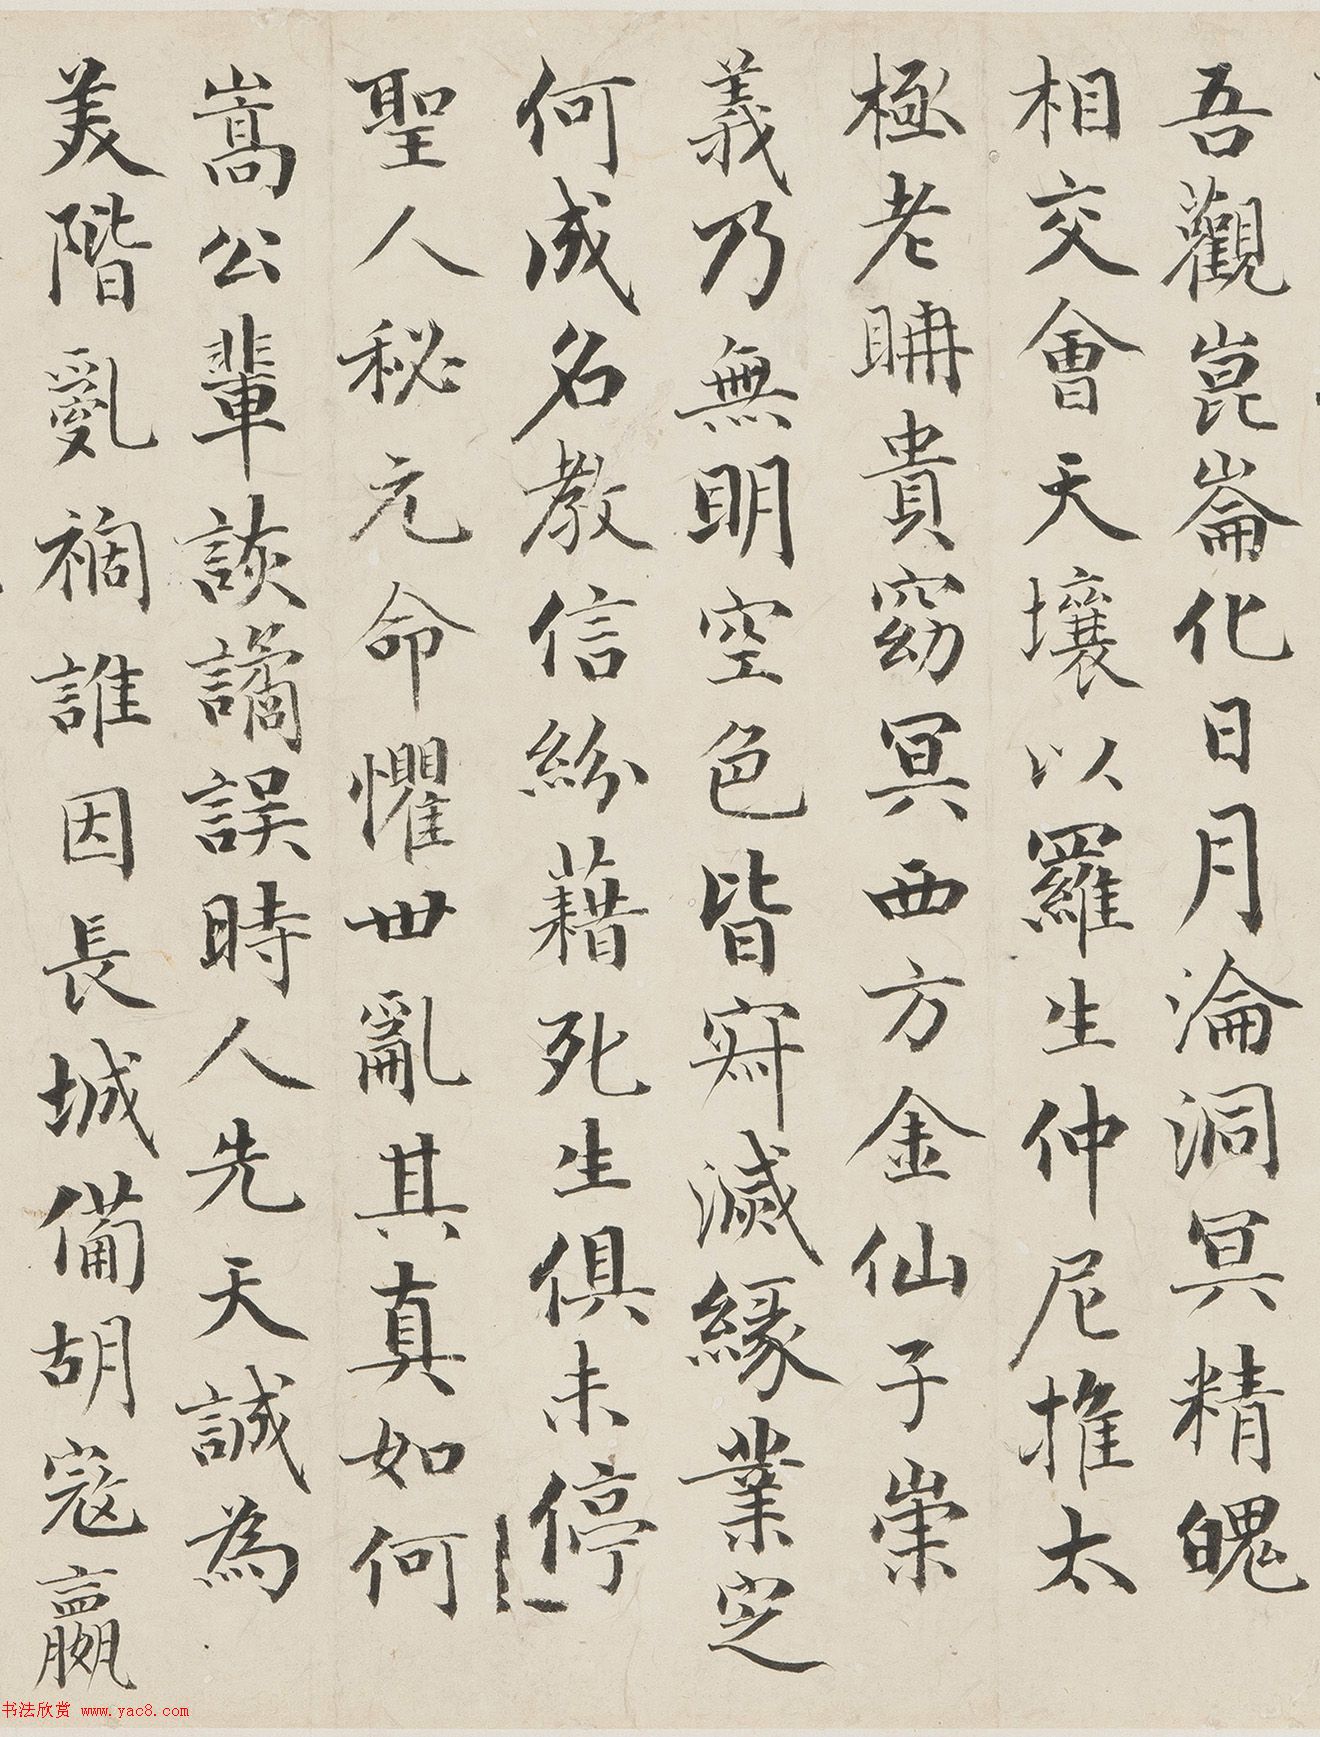 吾觀崑崙化日月淪洞冥精魄
相交會天壤以羅生仲尼推太
極老聃貴窈冥西方金仙子崇
義乃無明空色皆寂滅緣業定
何成名教信紛藉死生俱未停
聖人秘元命懼世亂其真如何
嵩公輩詼譎誤時人先天誠為
美階亂禍誰因長城備胡寇嬴
书法欣赏 www.yac8.com